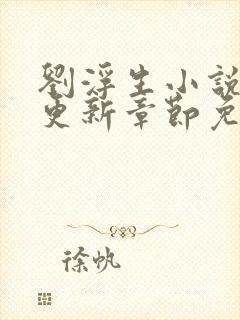 劉浮生小說
更新章節免
徐帆